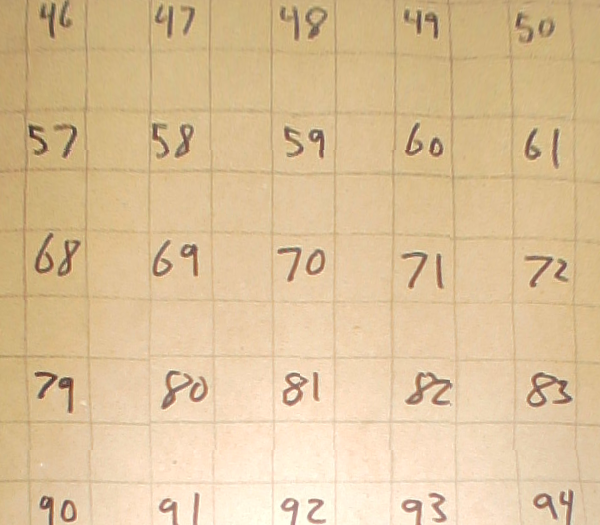 46 47 48 49 50
57 58 59 60 61
68 69 70 71 72
79 80 81 82 83
90 91 92 93 94